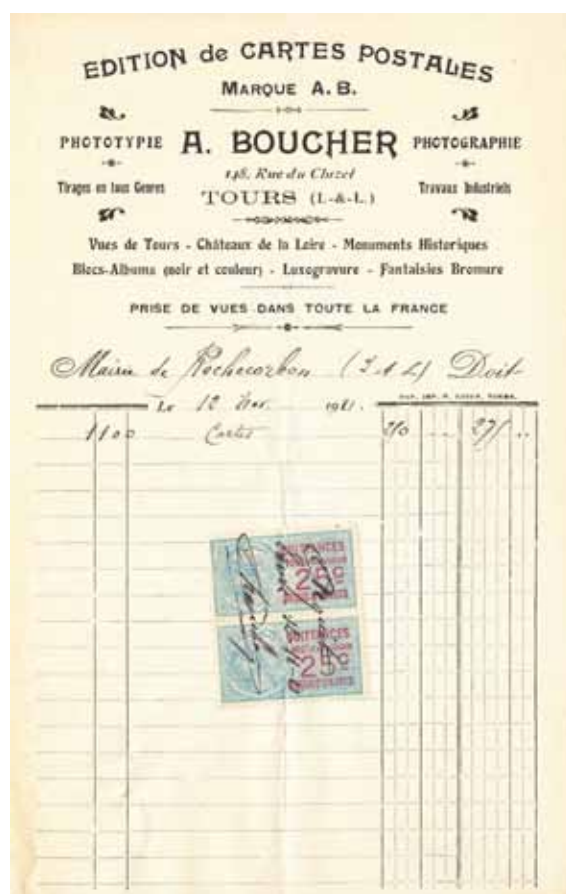 EDITION de CARTES POSTALES
MARQUE A. B.
PHOTOTYPIE A. BOUCHER PHOTOGRAPHIE
Tirages en tous Genres 148, Rue du Cluzel Travaux Industriels
TOURS (I.-&-L.)
Vues de Tours - Châteaux de la Loire - Monuments Historiques
Blocs-Albums (noir et couleur) - Luxogravure - Fantaisies Bromure
PRISE DE VUES DANS TOUTE LA FRANCE
Mairie de Rochecorbon (I & L) Doit
Le 12 Nov. 1921.
1100 Cartes 250 275
QUITTANCES
25c
QUITTANCES
25c